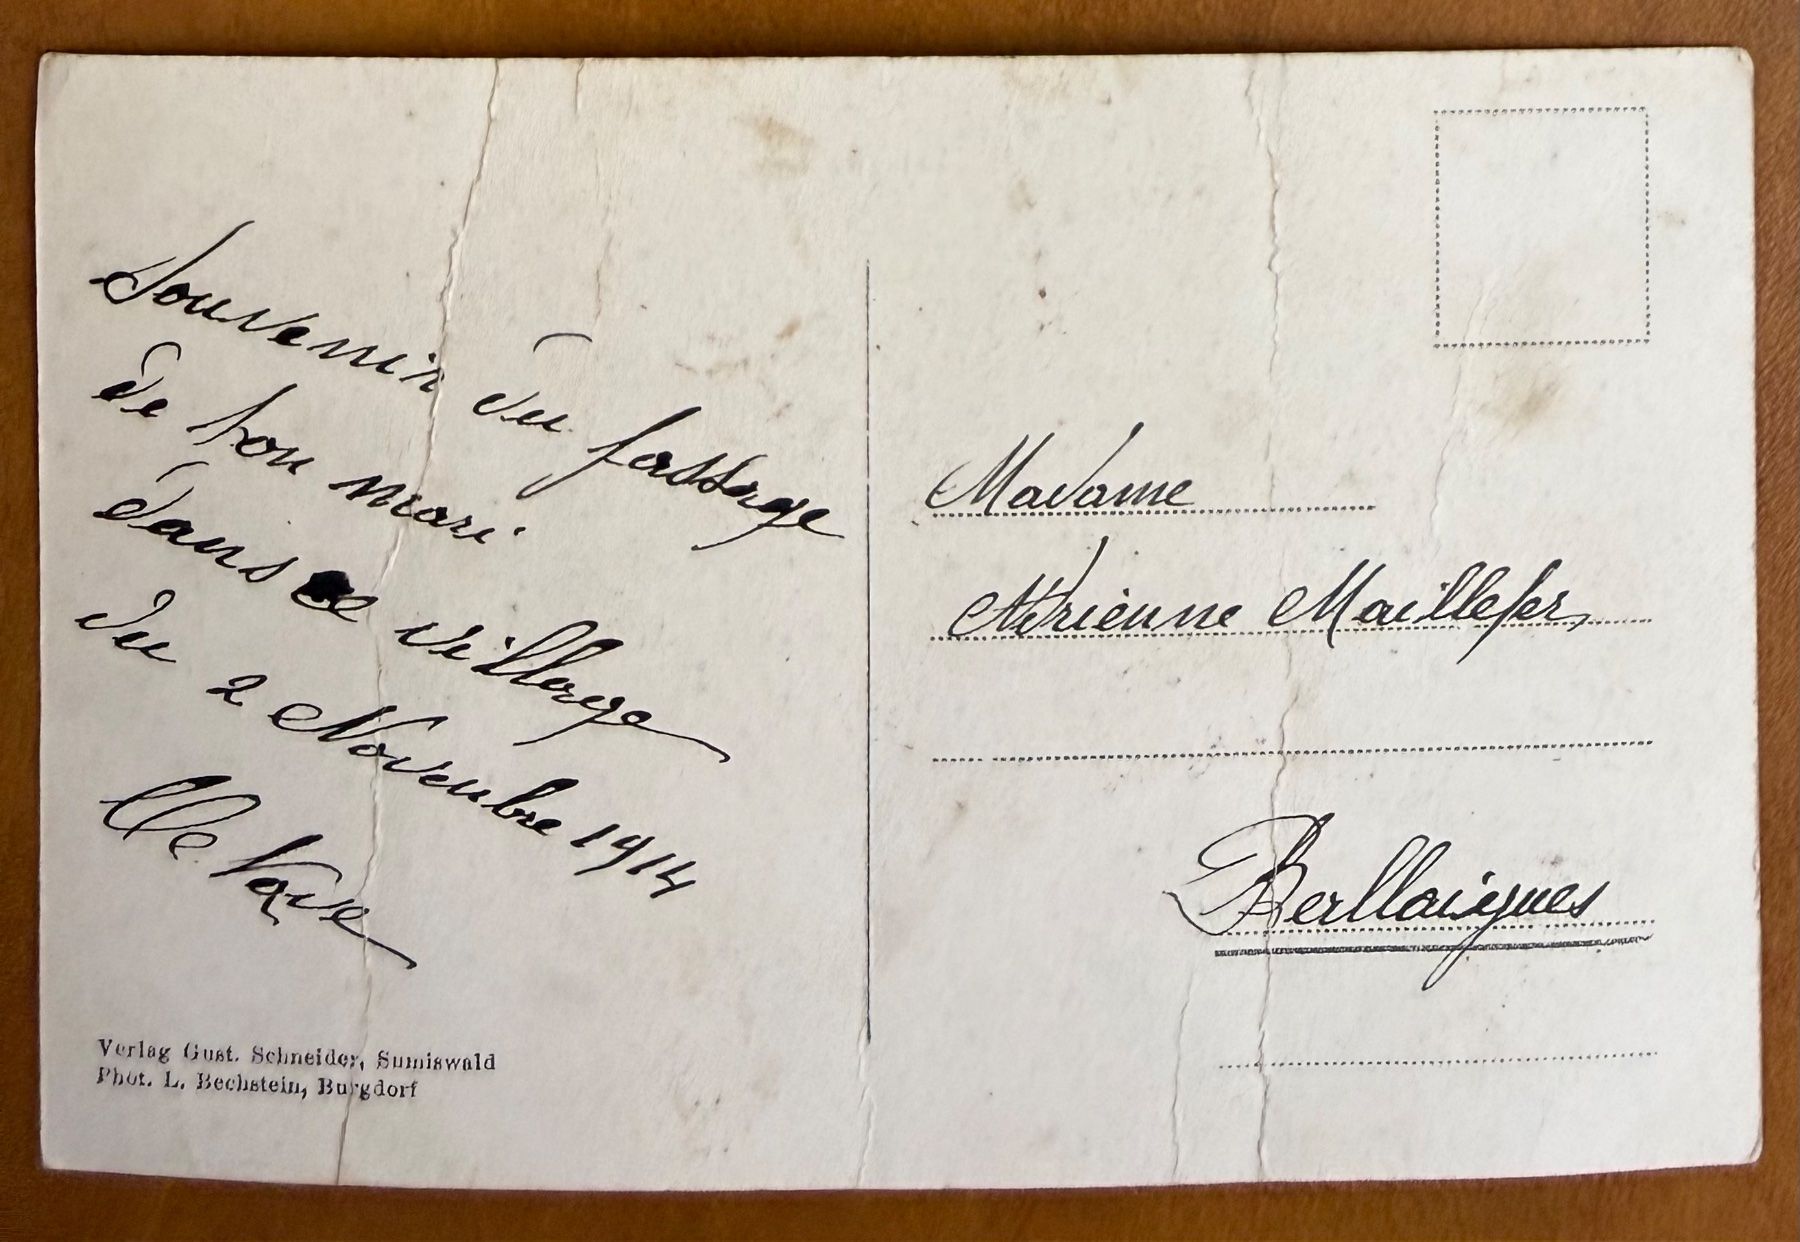 Souvenir du passage
de ton mari
dans ce village
du 2 Novembre 1914
Verlag Gust. Schneider, Sumiswald
Phot. L. Bechstein, Burgdorf
Madame
Adrienne Maillefer,
Ballaigues